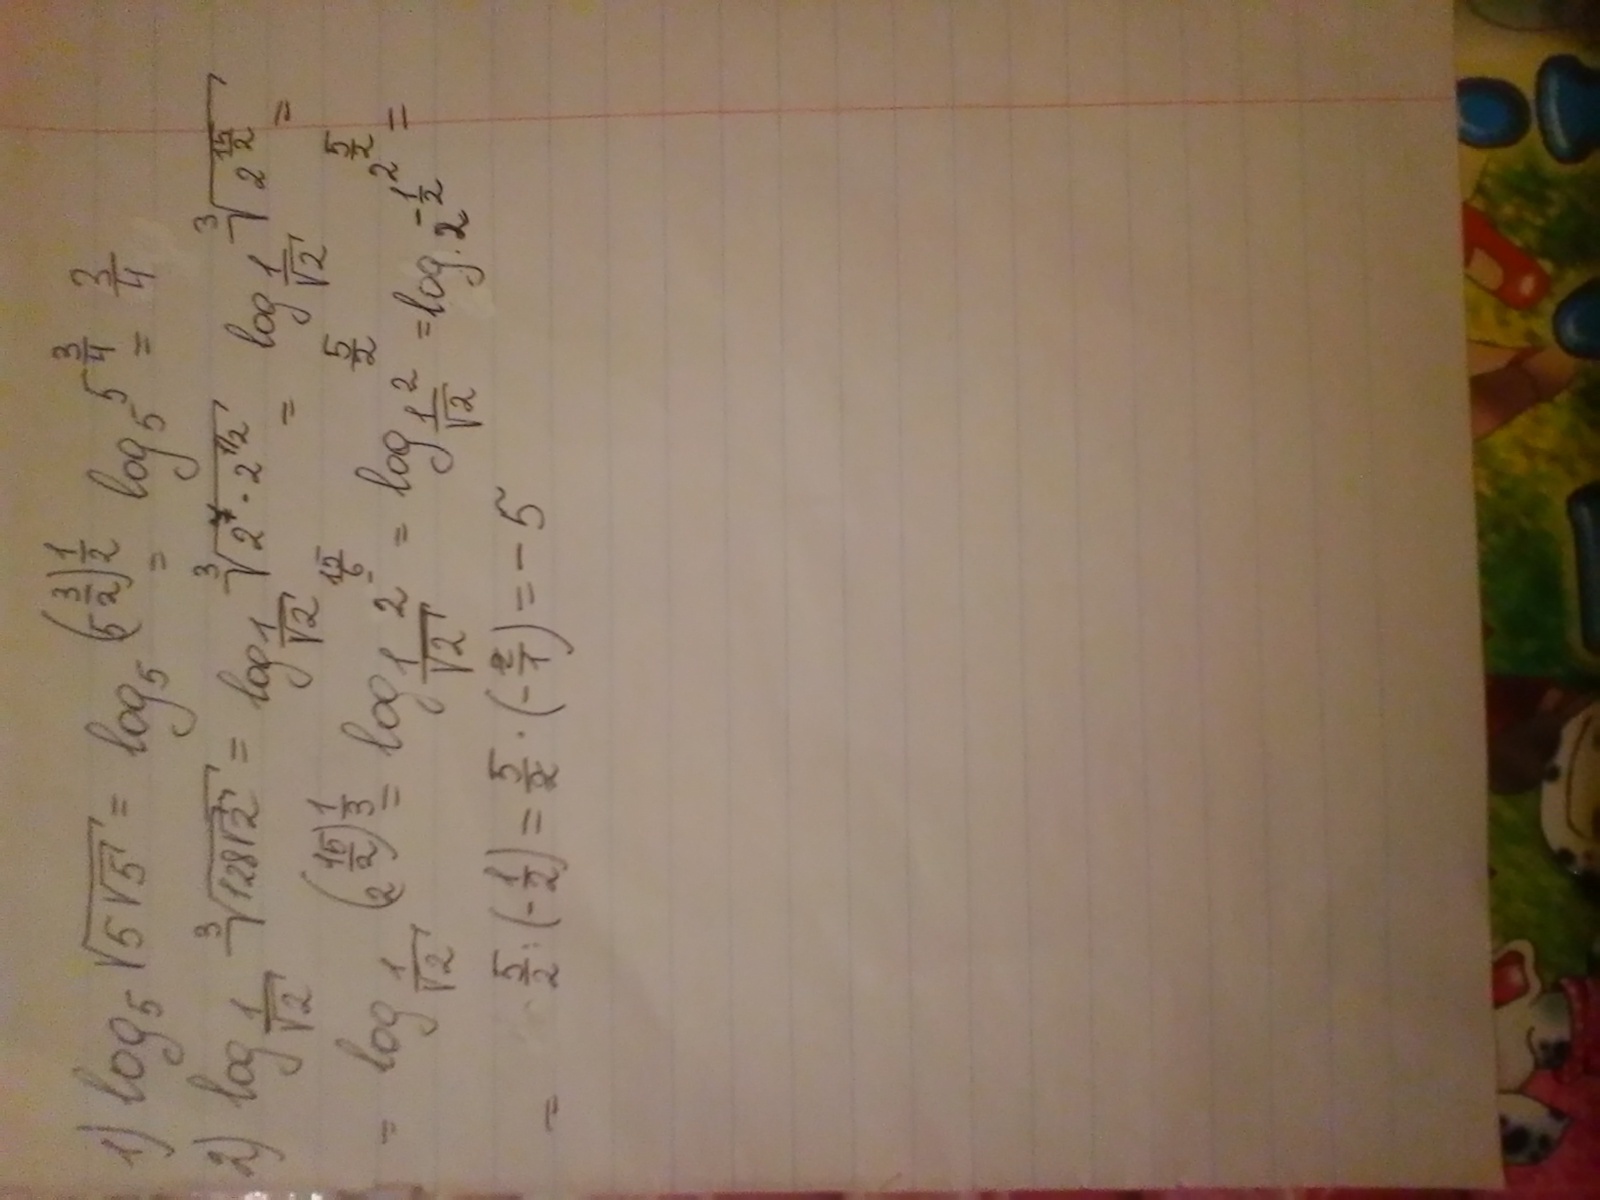 1) log₅ √(5√5) = log₅ (5^(3/2))^(1/2) = log₅ 5^(3/4) = 3/4
2) log_(1/√2) ∛(128√2) = log_(1/√2) ∛(2⁷ · 2^(1/2)) = log_(1/√2) ∛(2^(15/2)) =
= log_(1/√2) (2^(15/2))^(1/3) = log_(1/√2) 2^(15/6) = log_(1/√2) 2^(5/2) = log_(2^(-1/2)) 2^(5/2) =
= 5/2 : (-1/2) = 5/2 · (-2/1) = -5